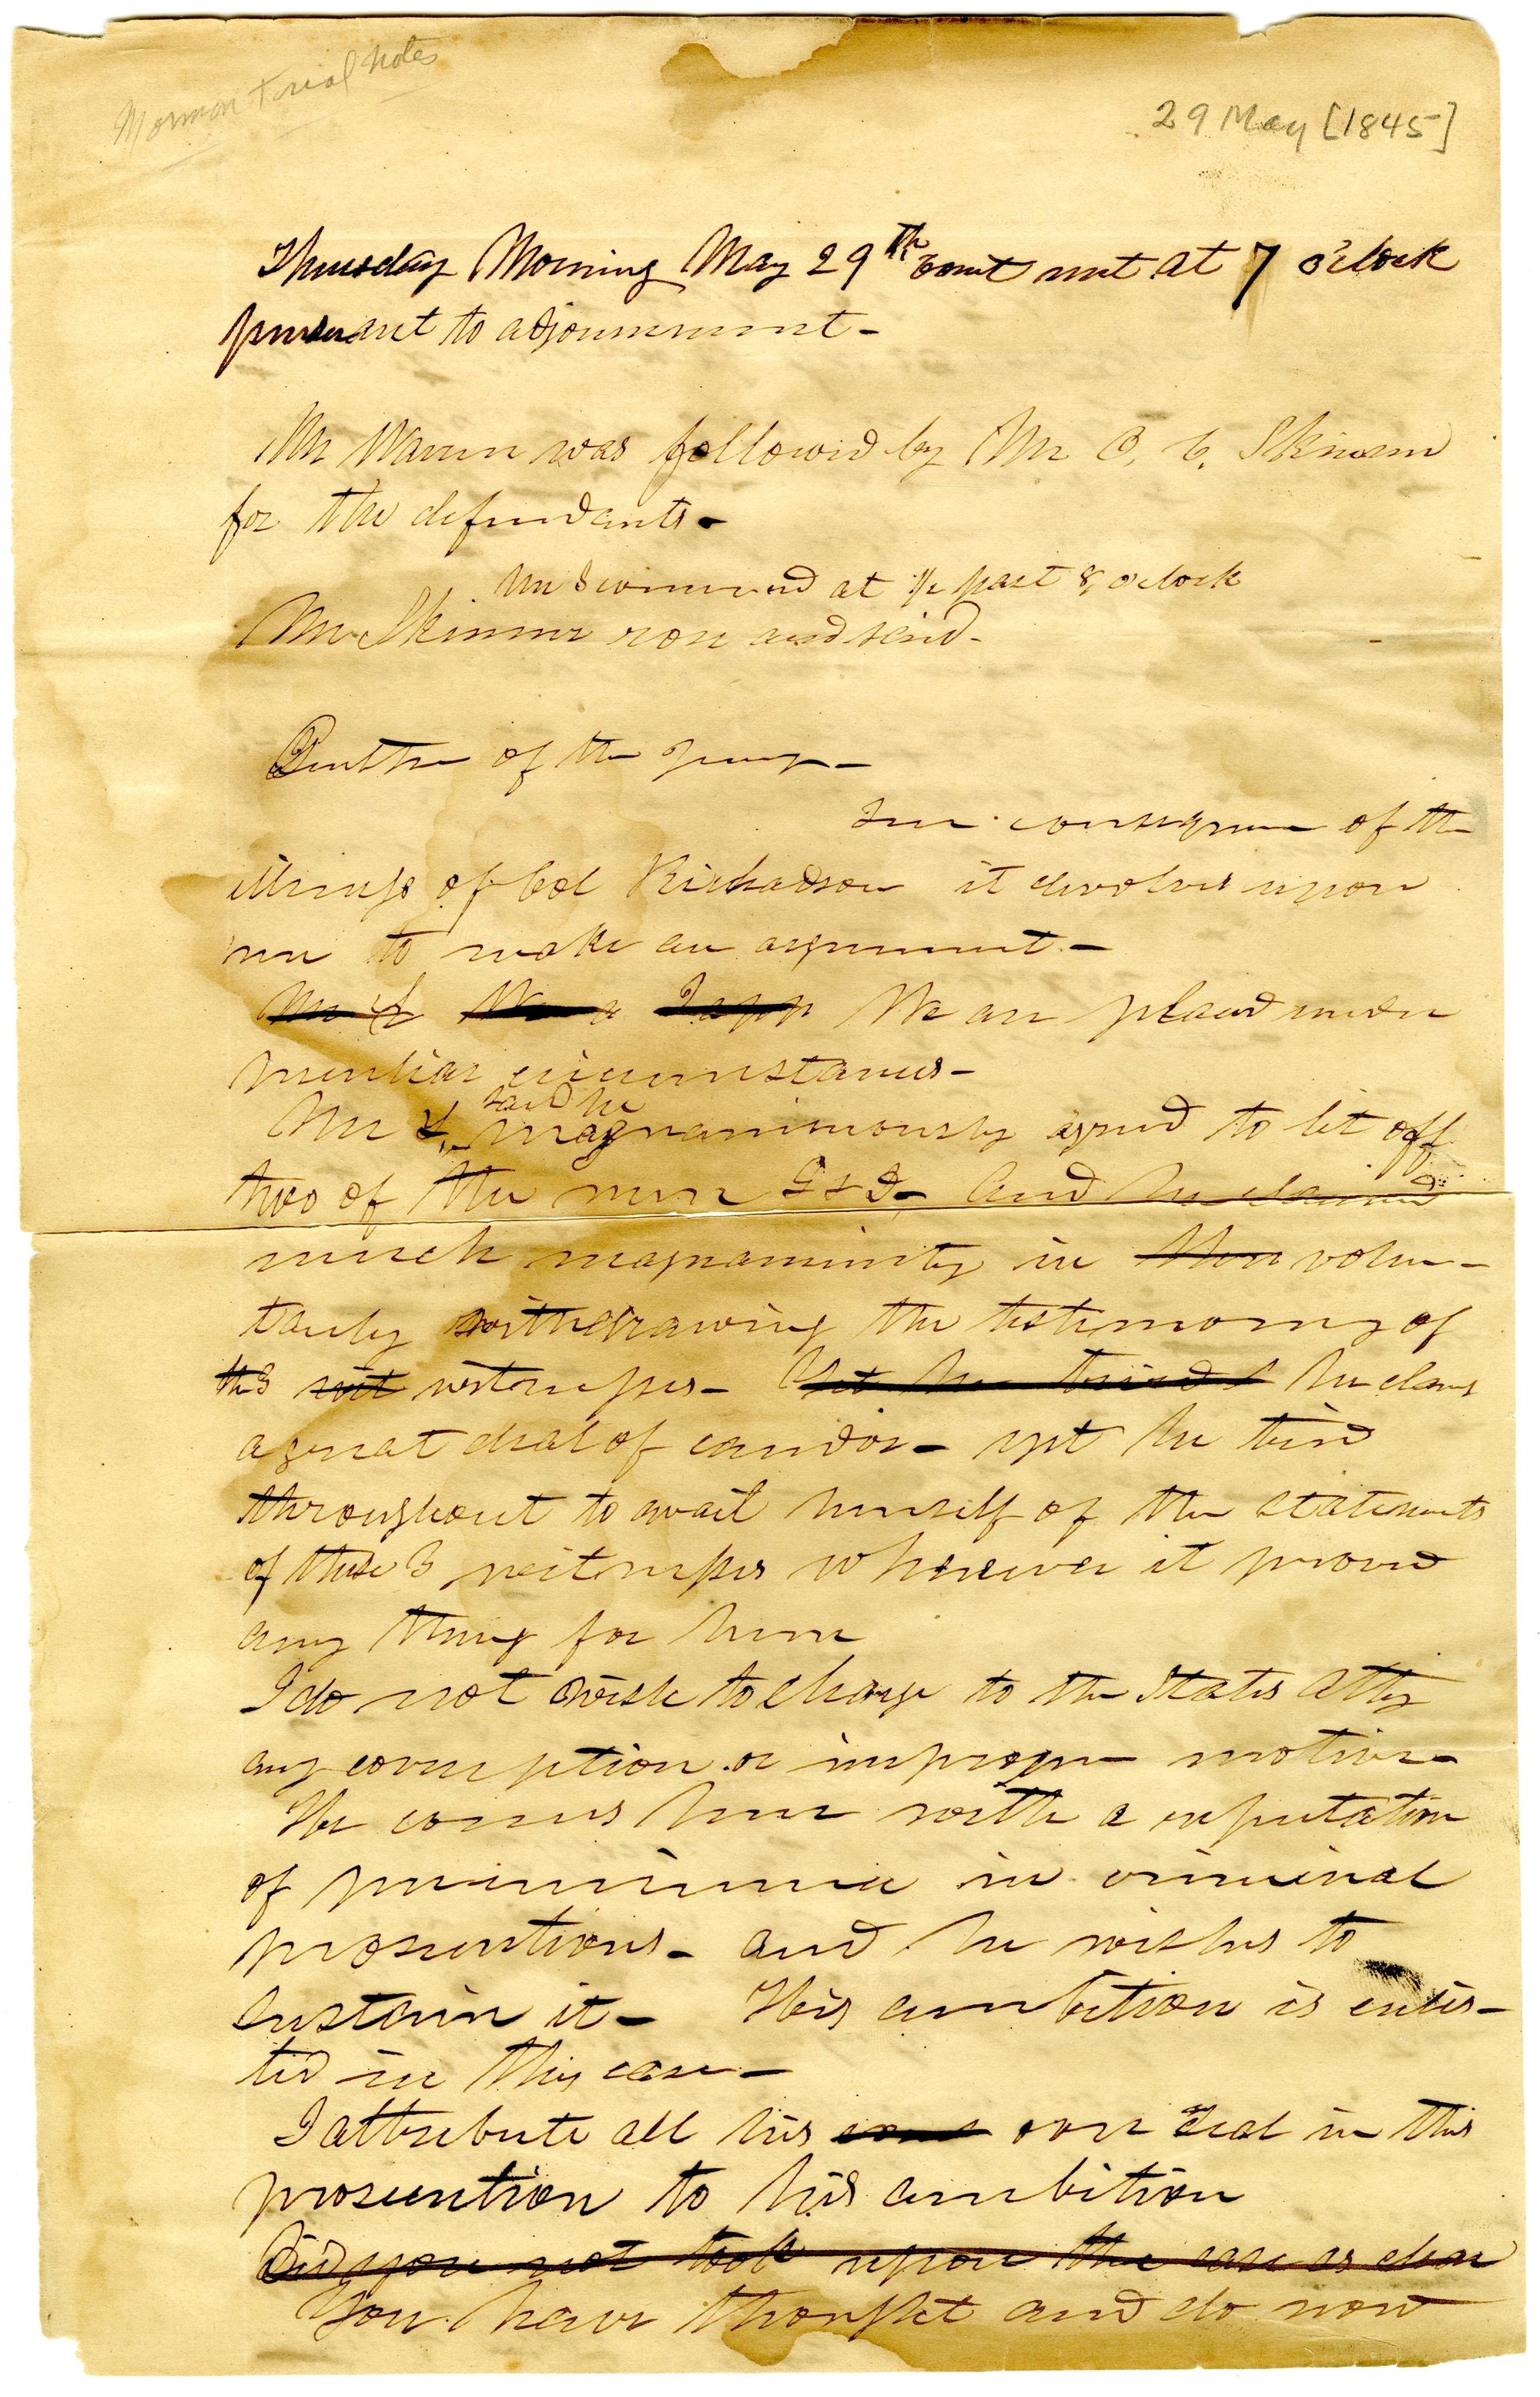 Mormon trial notes
29 May [1845]
Thursday Morning May 29th Court met at 7 o'clock
pursuant to adjournment -
Mr Warren was followed by Mr O. C. Skinner
for the defendants -
commenced at ½ past 8, o'clock
Mr Skinner rose and said -
Gentlm of the Jury -
In consequence of the
illness of Col Richadson it devolves upon
me to make an argument. -
We are placed under
peculiar circumstances -
said he
Mr L. magnanimously agreed to let off
two of the men G & D - And he claimed
much magnanimity in their volun-
tarily withdrawing the testimony of
the 3 wit witnesses - Yet he tried he claims
a great deal of candor - yet he tried
throughout to avail himself of the statements
of these 3 witnesses wherever it proved
any thing for him
I do not wish to charge to the States Atty
any corruption or improper motive -
He comes here with a reputation
of preeminence in criminal
prosecutions - and he wishes to
sustain it - His ambition is enlis-
ted in this case -
I attribute all his over zeal in this
prosecution to his ambition
Did you not look upon the case as clear
You have thought and do now